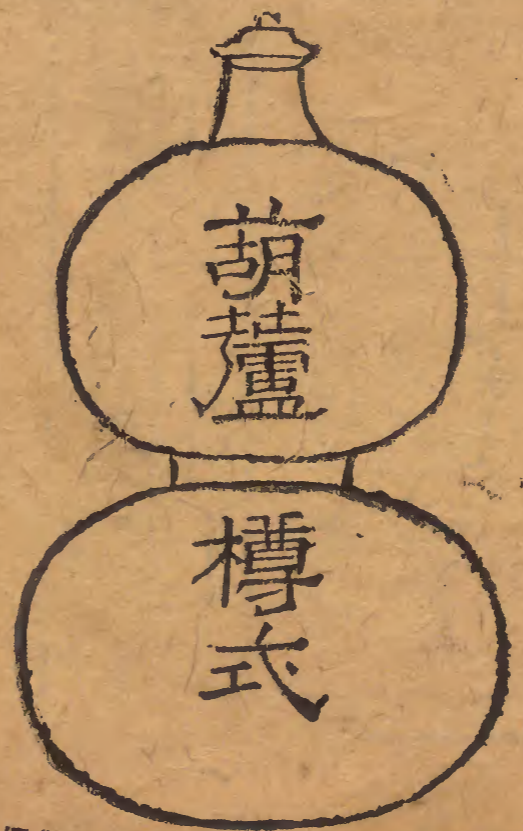 葫蘆
樽式